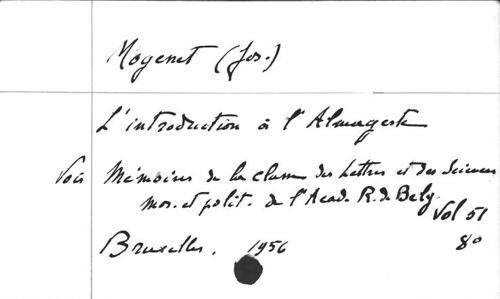 Mogenet (Jos.)
L'introduction à l'Almageste
Voir Mémoires de la classe des Lettres et des Sciences
mor. et polit. de l'Acad. R. de Belg.
Vol 51
Bruxelles. 1956 8°